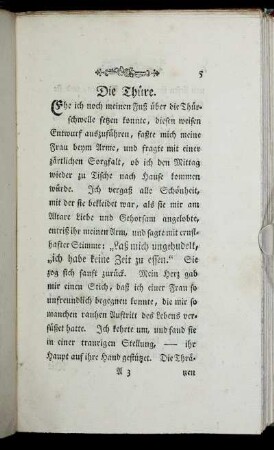 5
Die Thüre.
Ehe ich noch meinen Fuß über die Thür-
schwelle setzen konnte, diesen weisen
Entwurf auszuführen, faßte mich meine
Frau beym Arme, und fragte mit einer
zärtlichen Sorgfalt, ob ich den Mittag
wieder zu Tische nach Hause kommen
würde. Ich vergaß alle Schönheit,
mit der sie bekleidet war, als sie mir am
Altare Liebe und Gehorsam angelobte,
entriß ihr meinen Arm, und sagte mit ernst-
hafter Stimme: „Laß mich ungehudelt,
„ich habe keine Zeit zu essen.“ Sie
zog sich sanft zurück. Mein Herz gab
mir einen Stich, daß ich einer Frau so
unfreundlich begegnen konnte, die mir so
manchen rauhen Auftritt des Lebens ver-
süßet hatte. Ich kehrte um, und fand sie
in einer traurigen Stellung, — ihr
Haupt auf ihre Hand gestützet. Die Thrä-
A 3 nen